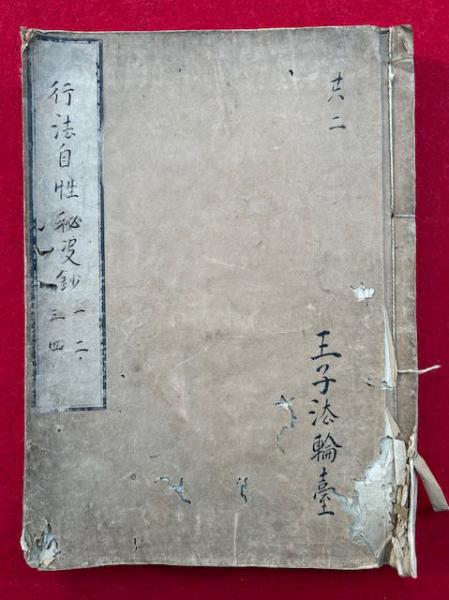 廿六二
王子法輪臺
行法自性秘要鈔 一二
三四